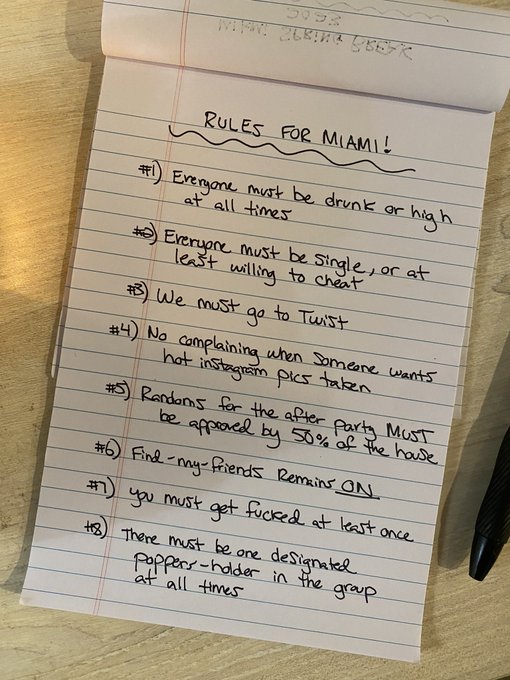 MIAMI SPRING BREAK
2023
RULES FOR MIAMI!
#1) Everyone must be drunk or high
at all times
#2) Everyone must be single, or at
least willing to cheat
#3) We must go to Twist
#4) No complaining when someone wants
hot instagram pics taken
#5) Randoms for the after party MUST
be approved by 50% of the house
#6) Find-my-friends Remains ON
#7) you must get fucked at least once
#8) There must be one designated
poppers-holder in the group
at all times